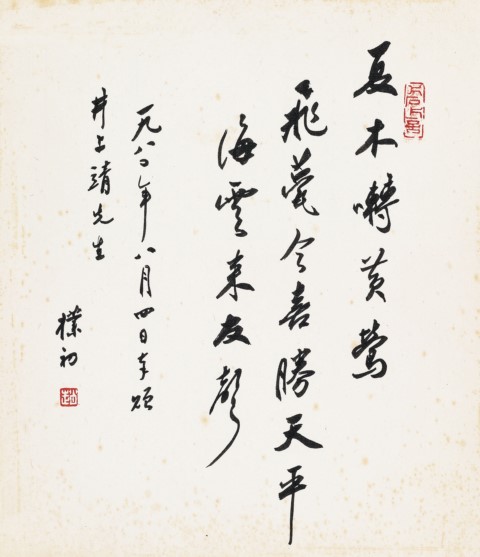 夏木囀黄鶯
飛甍今喜勝天平
海雲来友聲
一九八〇年八月四日奉頌
井上靖先生
樸初